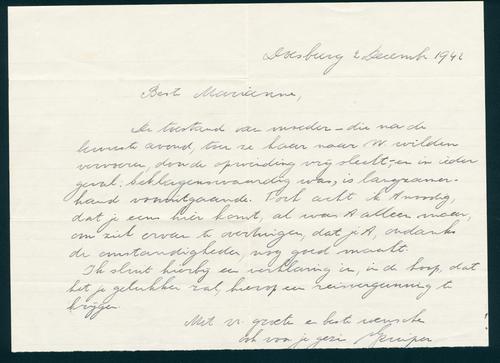 Doesburg 2 December 1942
Beste Marianne,
De toestand van moeder – die na de
bewuste avond, toen ze haar naar W. wilden
vervoeren, door de opwinding vrij slecht, en in ieder
geval: beklagenswaardig was, is langzamer-
hand vooruitgaande. Toch acht ik 't noodig,
dat je eens hier komt, al was 't alleen maar,
om zich ervan te overtuigen, dat zij 't, ondanks
de omstandigheden, nog goed maakt.
Ik sluit hierbij een verklaring in, in de hoop, dat
het je gelukken zal, hierop een reisvergunning te
krijgen.
Met vr. groete en beste wensche
ook voor je gezin